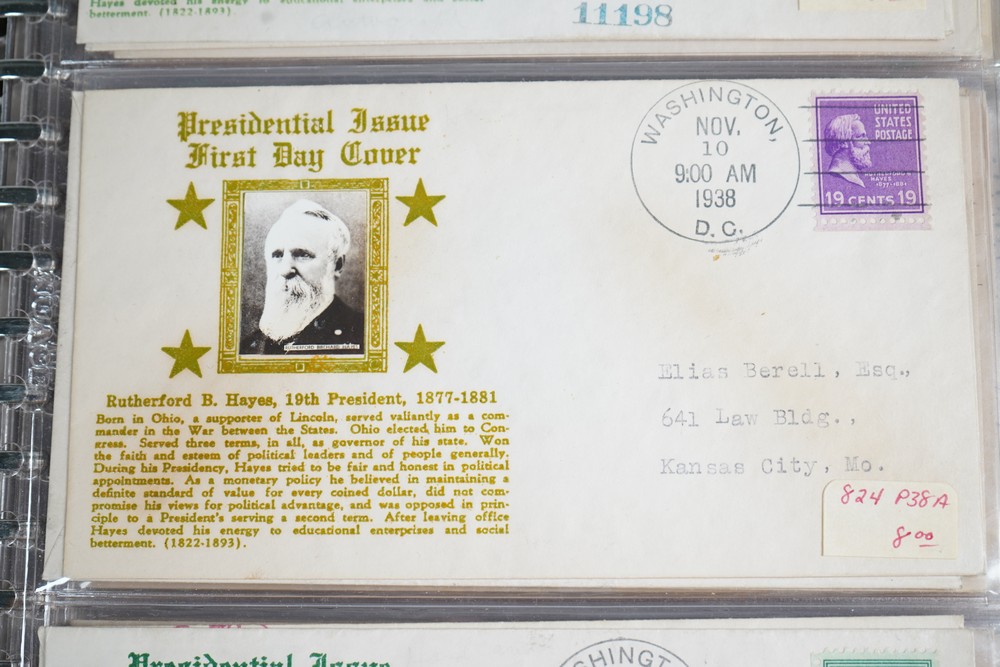 Hayes devoted his energy to educational enterprises and social
betterment. (1822-1893).
11198
Presidential Issue
First Day Cover
RUTHERFORD BIRCHARD HAYES
Rutherford B. Hayes, 19th President, 1877-1881
Born in Ohio, a supporter of Lincoln, served valiantly as a com-
mander in the War between the States. Ohio elected him to Con-
gress. Served three terms, in all, as governor of his state. Won
the faith and esteem of political leaders and of people generally.
During his Presidency, Hayes tried to be fair and honest in political
appointments. As a monetary policy he believed in maintaining a
definite standard of value for every coined dollar, did not com-
promise his views for political advantage, and was opposed in prin-
ciple to a President's serving a second term. After leaving office
Hayes devoted his energy to educational enterprises and social
betterment. (1822-1893).
WASHINGTON,
NOV.
10
9:00 AM
1938
D. C.
UNITED
STATES
POSTAGE
RUTHERFORD B.
HAYES
1877-1881
19 CENTS 19
Elias Berell, Esq.,
641 Law Bldg.,
Kansas City, Mo.
824 P38A
8.00
Presidential Issue
SHINGT